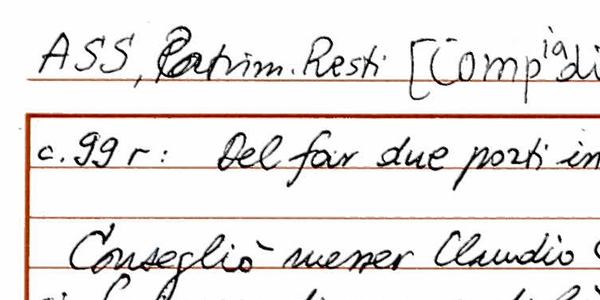 ASS, Patrim. Resti [Compia di
c. 99 r: Del far due porti in
Consegliò messer Claudio